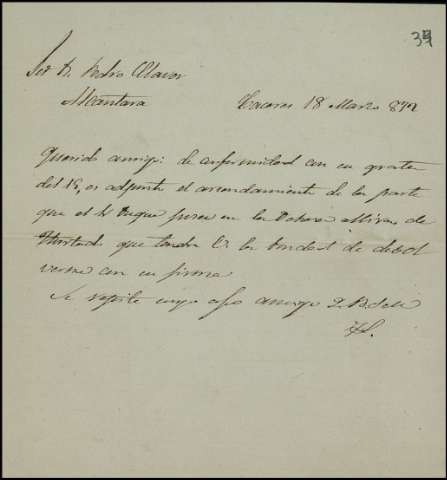 39
Sor D. Pedro Claver
Alcántara
Caceres 18 Marzo 872
Querido amigo: de conformidad con su grata
del 15, es adjunto el arrendamiento de la parte
que el Sr Duque posee en la Dehesa
de
Hurtado que tendrá V. la bondad de debol
verme con su firma
Se repite suyo afo amigo Q. B. S. M.